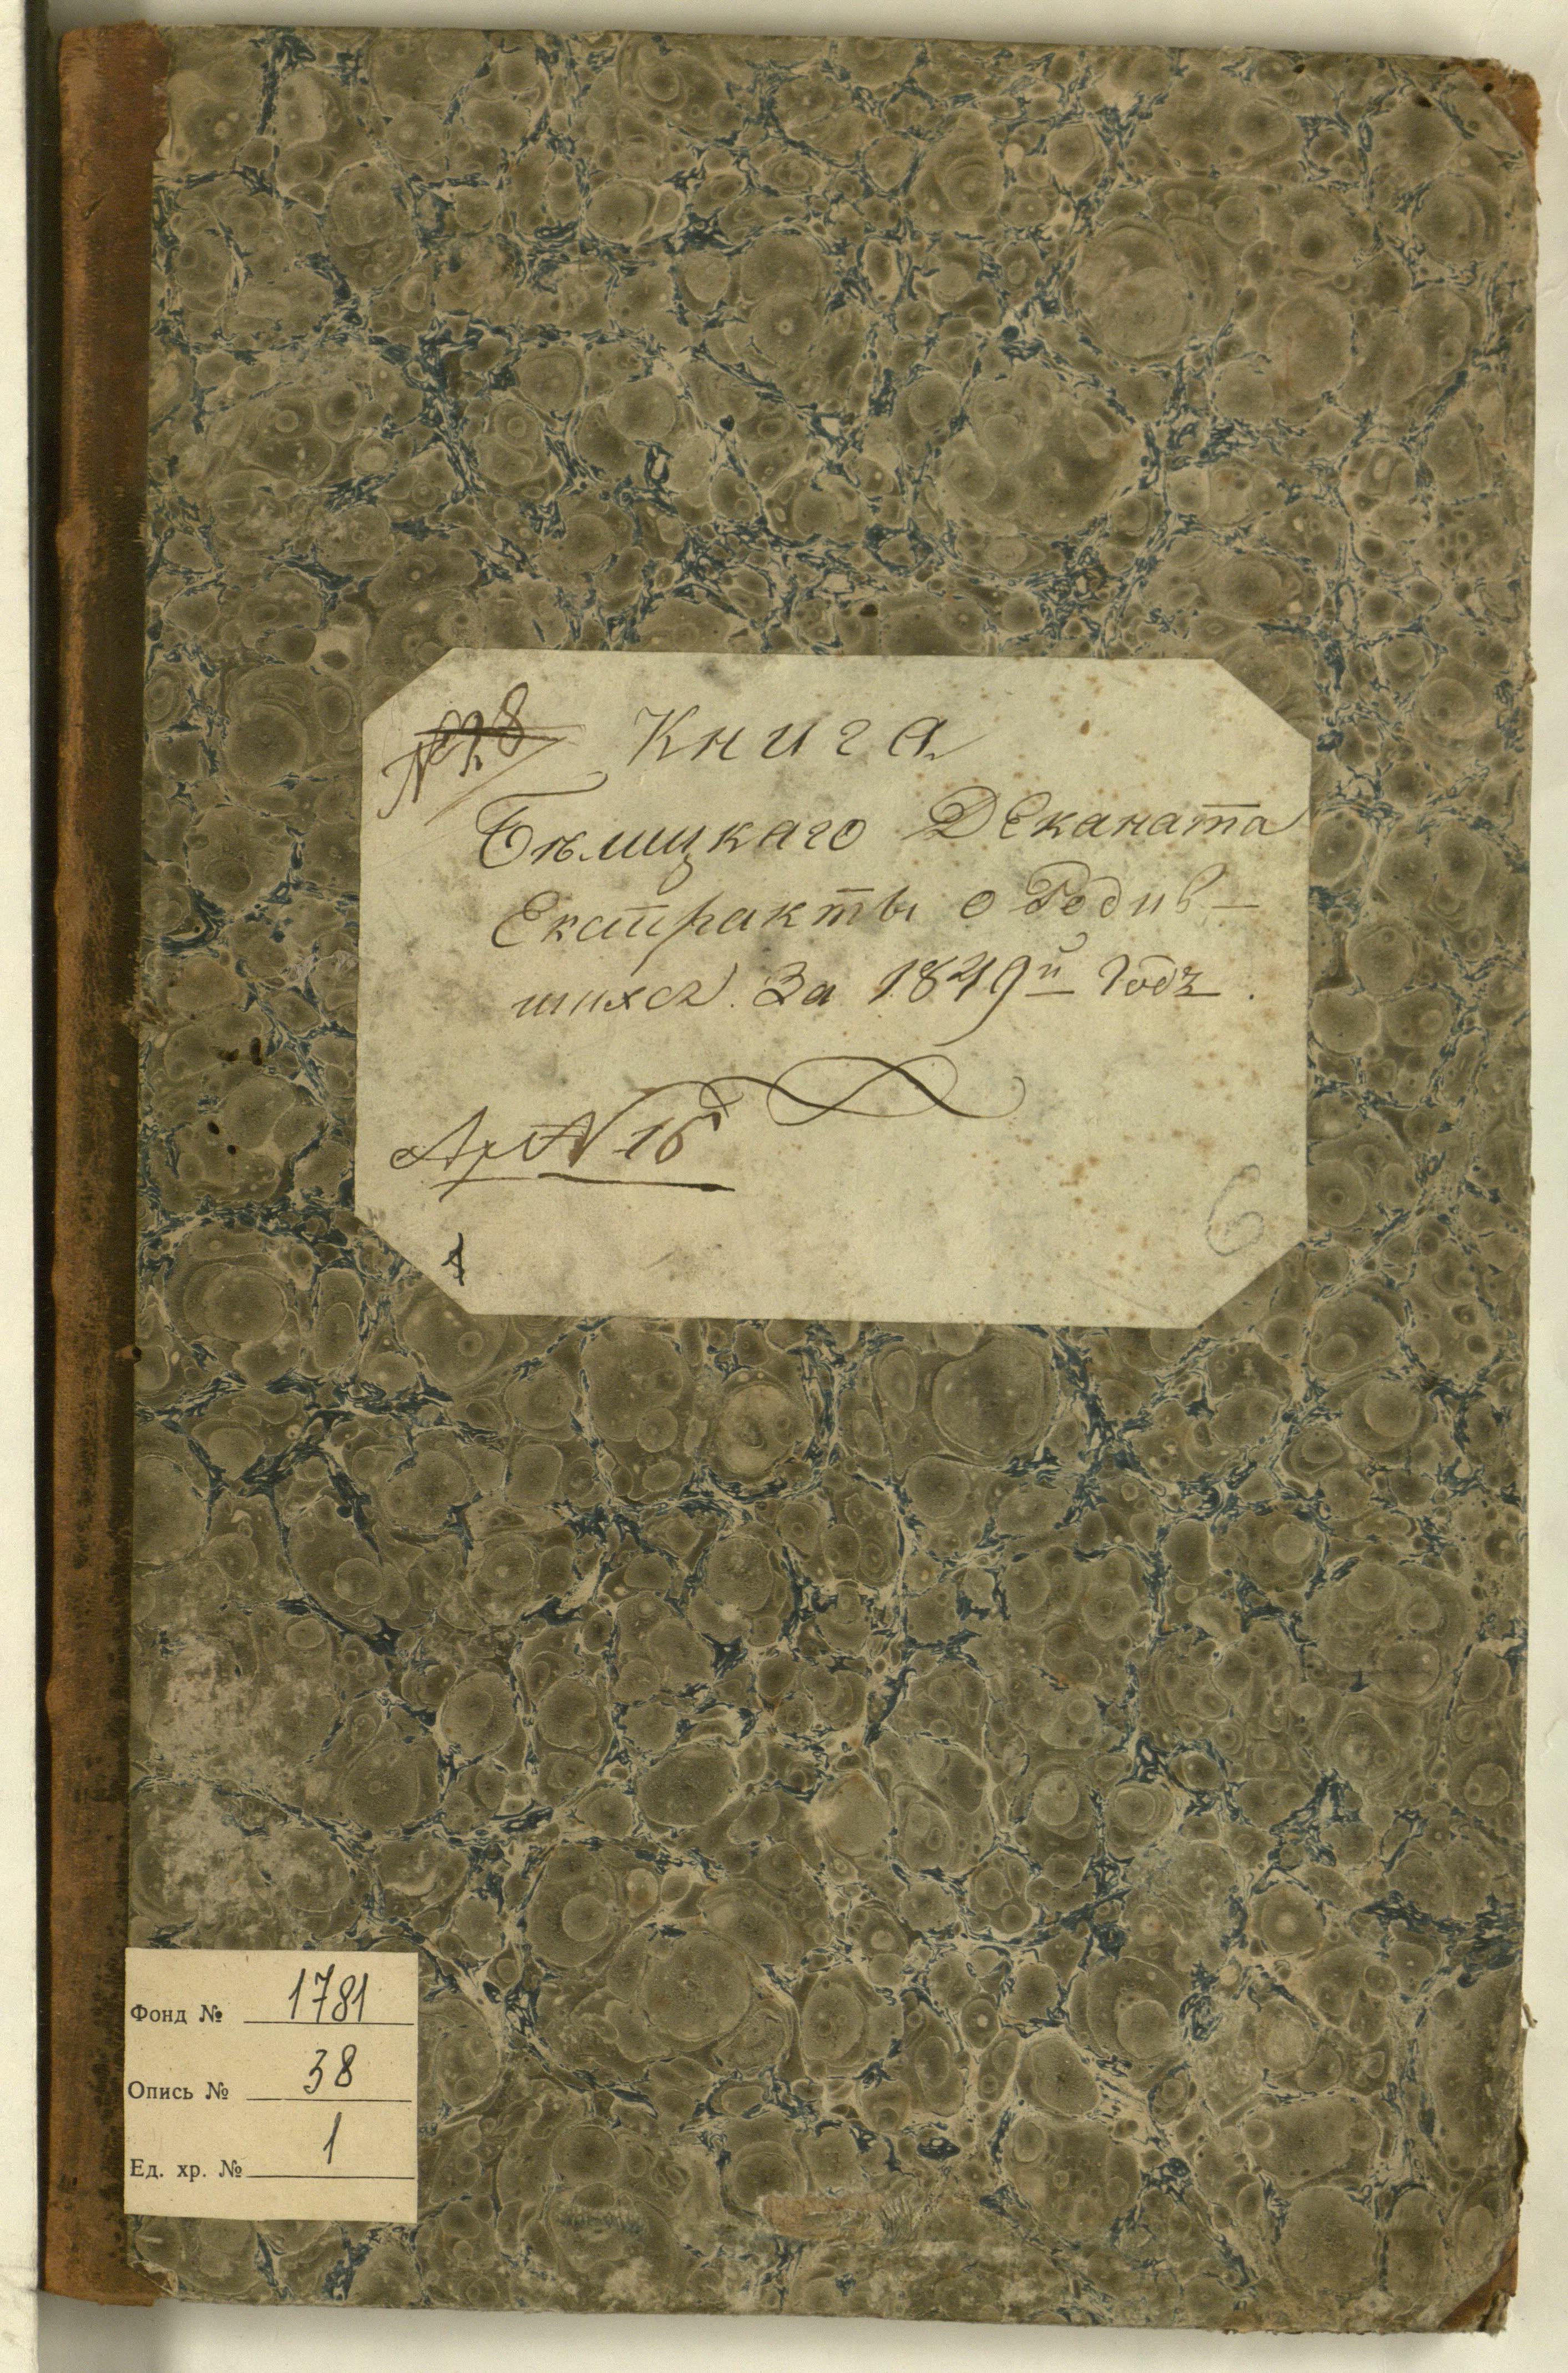 № 28 Книга
Бѣлицкаго Деканата
Екстракты о Родив-
шихся. За 1849й Годъ.
Ар № 16
1
6
Фонд № 1781
Опись № 38
Ед. хр. № 1